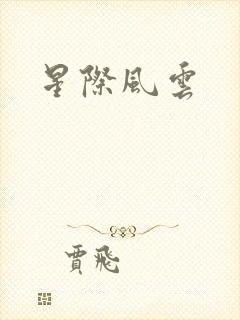 星際風雲
賈飛